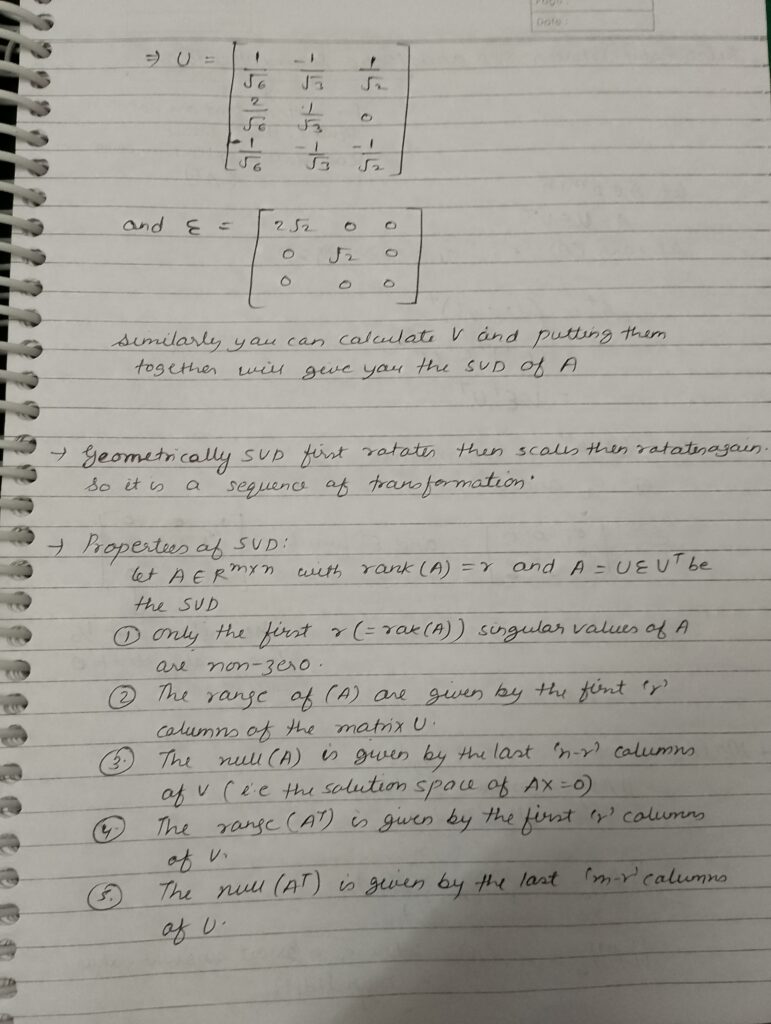 Date:
⇒ U = [ 1/√6 -1/√3 1/√2
2/√6 1/√3 0
1/√6 -1/√3 -1/√2 ]
and Ɛ = [ 2√2 0 0
0 √2 0
0 0 0 ]
similarly you can calculate V and putting them
together will give you the SVD of A
→ Geometrically SVD first rotates then scales then rotates again.
So it is a sequence of transformation.
→ Properties of SVD:
let A ∈ R^mxn with rank (A) = r and A = UƐV^T be
the SVD
① only the first r (= rak(A)) singular values of A
are non-zero.
② The range of (A) are given by the first 'r'
columns of the matrix U.
③ The null (A) is given by the last 'n-r' columns
of V (i.e the solution space of AX = 0)
④ The range (A^T) is given by the first 'r' columns
of V.
⑤ The null (A^T) is given by the last 'm-r' columns
of U.